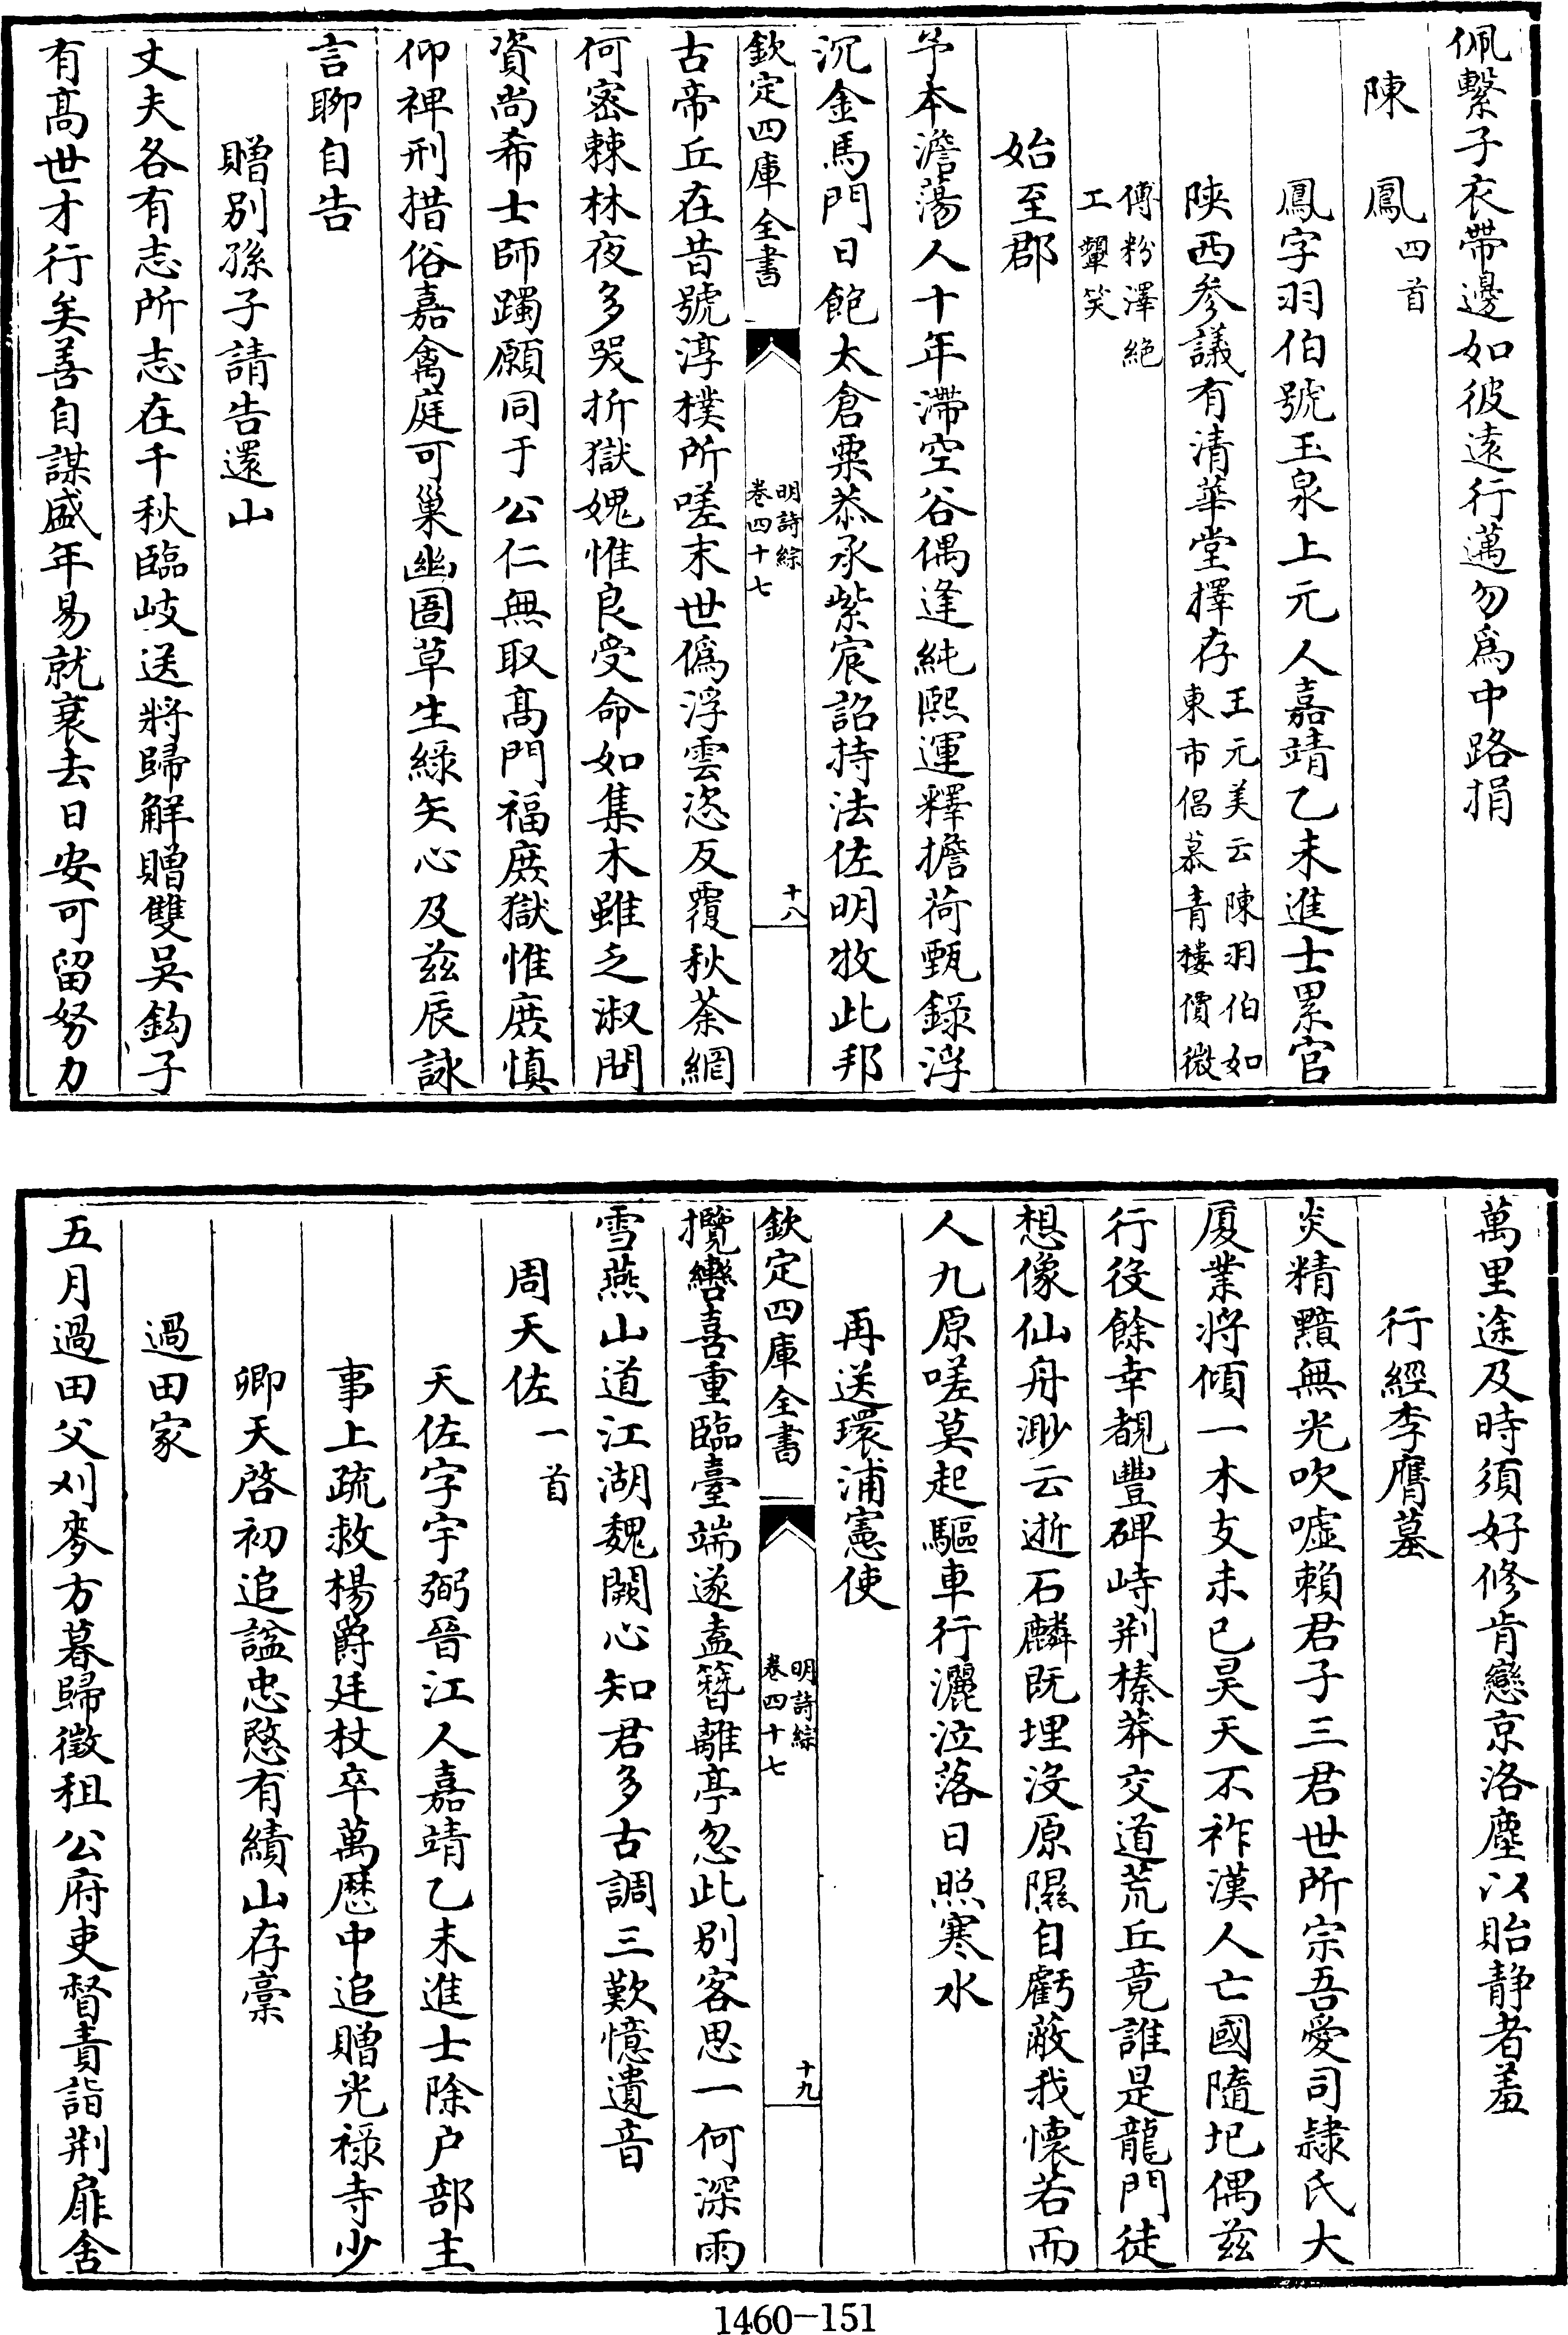 佩繫子衣帶邊如彼遠行邁勿爲中路捐
陳　鳳四首
鳳字羽伯號玉泉上元人嘉靖乙未進士累官
陜西參議有清華堂擇存王元美云陳羽伯如東市倡慕青樓價微
傅粉澤絶工顰笑
始至郡
予本澹蕩人十年滯空谷偶逢純熙運釋擔荷甄錄浮
沉金馬門日飽太倉粟恭承紫宸詔持法佐明牧此邦
欽定四庫全書
明詩綜
卷四十七
十八
古帝丘在昔號淳樸所嗟末世僞浮雲恣反覆秋荼網
何密棘林夜多哭折獄媿惟良受命如集木雖乏淑問
資尚希士師躅願同于公仁無取髙門福庶獄惟庶慎
仰裨刑措俗嘉禽庭可巢幽圄草生綠矢心及兹辰詠
言聊自告
贈别孫子請告還山
丈夫各有志所志在千秋臨岐送將歸解贈雙吳鈎子
有髙世才行矣善自謀盛年易就衰去日安可留努力
萬里途及時須好修肯戀京洛塵以貽靜者羞
行經李膺墓
炎精黯無光吹嘘賴君子三君世所宗吾愛司隷氏大
厦業將傾一木支未已昊天不祚漢人亡國隨圮偶兹
行役餘幸覩豐碑峙荆榛莽交道荒丘竟誰是龍門徒
想像仙舟渺云逝石麟既埋沒原隰自虧蔽我懷若而
人九原嗟莫起驅車行灑泣落日照寒水
再送環浦憲使
欽定四庫全書
明詩綜
卷四十七
十九
攬轡喜重臨臺端遂盍簮離亭忽此别客思一何深雨
雪燕山道江湖魏闕心知君多古調三歎憶遺音
周天佐一首
天佐字宇弼晉江人嘉靖乙未進士除户部主
事上疏救楊爵廷杖卒萬厯中追贈光禄寺少
卿天啓初追諡忠愍有績山存稾
過田家
五月過田父刈麥方暮歸徵租公府吏督責詣荆扉舍
1460-151